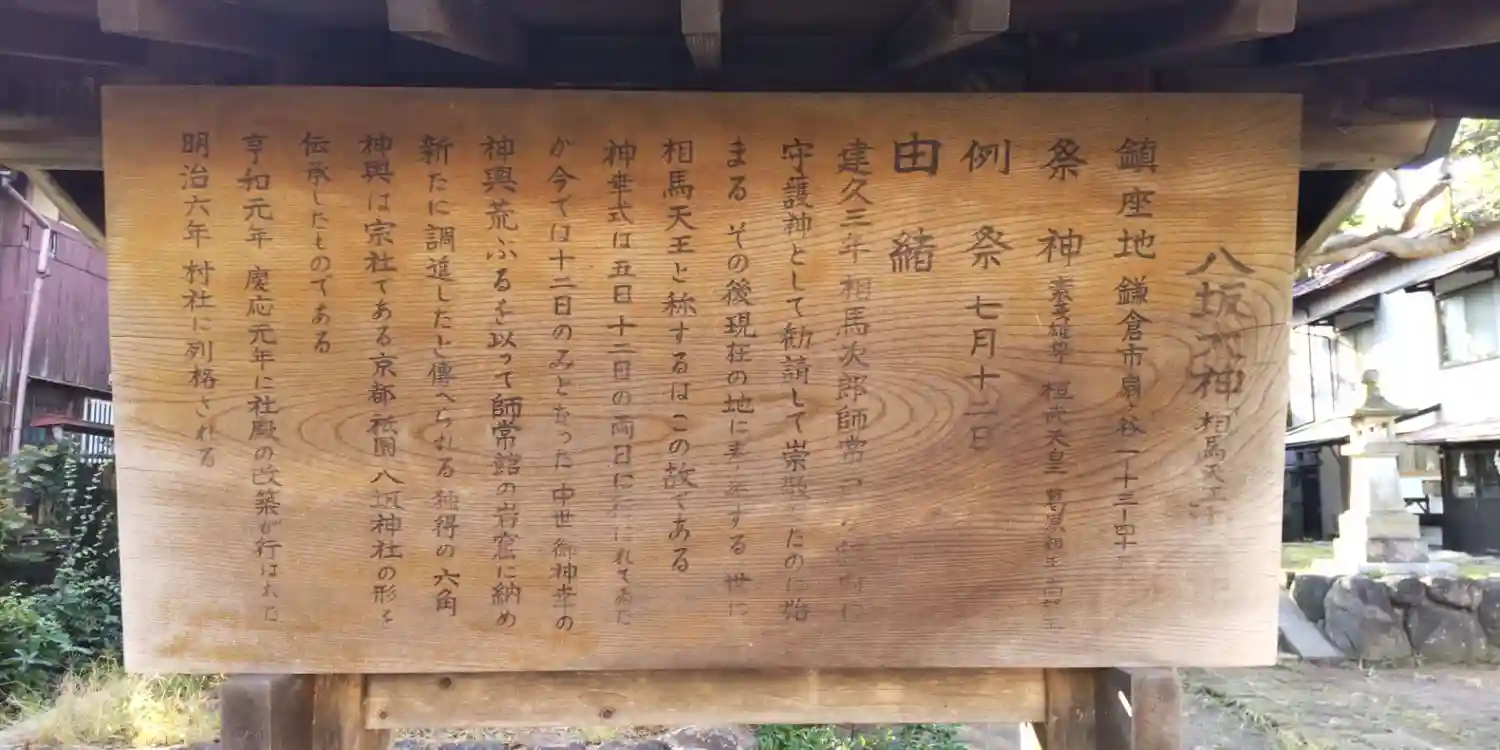 八坂大神 相馬天王
鎮座地 鎌倉市扇ヶ谷一ー十三ー四十
祭神 素戔雄尊 桓武天皇 葛原親王 高望王
例祭 七月十二日
由緒
建久三年相馬次郎師常己
守護神として勧請して崇敬したのに始
まる その後現在の地に奉遷する 世に
相馬天王と称するはこの故である
神幸式は五日十二日の両日に行はれてゐた
が今では十二日のみとなった 中世 御神幸の
神輿荒ぶるを以って師常館の岩窟に納め
新たに調進したと傳へられる 独得の六角
神輿は宗社である京都祇園八坂神社の形を
伝承したものである
享和元年 慶応元年に社殿の改築が行はれた
明治六年 村社に列格される